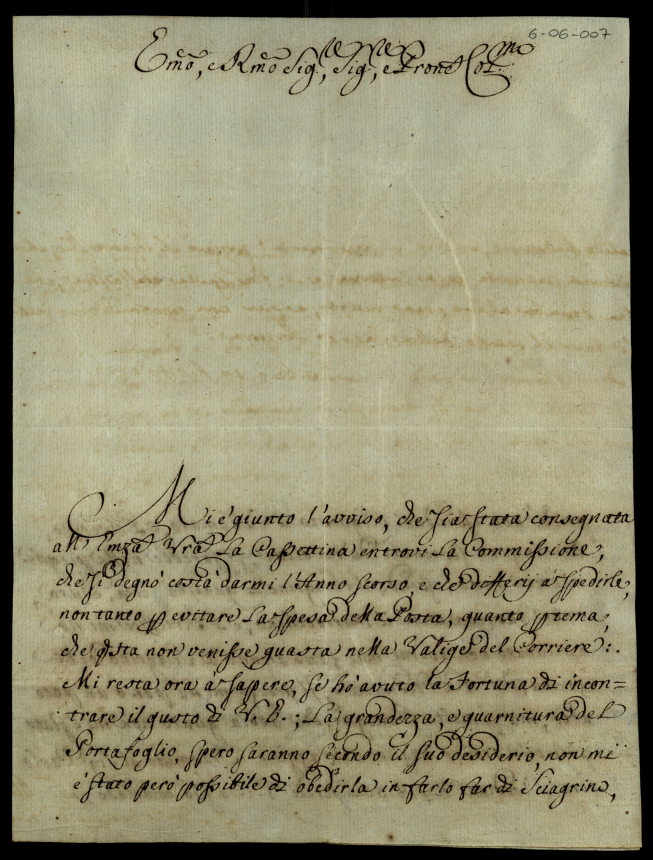 6-06-007
Emo, e Rmo Sigre, Sigre, e Prone Colmo
Mi è giunto l'avviso, che sia stata consegnata
all' Emza Vra La Cassettina entrovi La Commissione,
che si degnò costà darmi l'Anno scorso, e che differij à spedirle,
non tanto p evitare La spesa della Posta, quanto p tema,
che qsta non venisse guasta nella Valige del Corriere:.
Mi resta ora à sapere, se hò avuto la Fortuna di incon=
trare il gusto di V. E.; La grandezza, e guarnitura del
Portafoglio, spero saranno secondo il suo desiderio, non mi
è stato però possibile di obedirla in farlo far di Sciagrino,